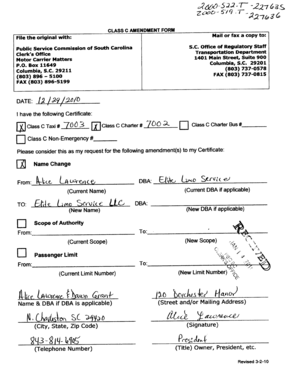 2000-522-T - 227635
2000-519-T - 227636
CLASS C AMENDMENT FORM
File the original with:
Public Service Commission of South Carolina
Clerk's Office
Motor Carrier Matters
P.O. Box 11649
Columbia, S.C. 29211
(803) 896 – 5100
FAX (803) 896-5199
Mail or fax a copy to:
S.C. Office of Regulatory Staff
Transportation Department
1401 Main Street, Suite 900
Columbia, S.C. 29201
(803) 737-0578
FAX (803) 737-0815
DATE: 12/29/2010
I have the following Certificate:
X Class C Taxi # 7003 X Class C Charter # 7002 Class C Charter Bus #
Class C Non-Emergency #
Please consider this as my request for the following amendment(s) to my Certificate:
X Name Change
From: Alice Lawrence DBA: Elite Limo Service
(Current Name) (Current DBA if applicable)
TO: Elite Limo Service LLC DBA:
(New Name) (New DBA if applicable)
Scope of Authority
From: To:
(Current Scope) (New Scope)
RECEIVED
Passenger Limit
From: To:
(Current Limit Number) (New Limit Number)
Alice Lawrence & Grant
Name & DBA if DBA is applicable)
120 Dorchester Manor
(Street and/or Mailing Address)
N. Charleston SC 29420
(City, State, Zip Code)
Alice Lawrence
(Signature)
843-814-6985
(Telephone Number)
President
(Title) Owner, President, etc.
Revised 3-2-10